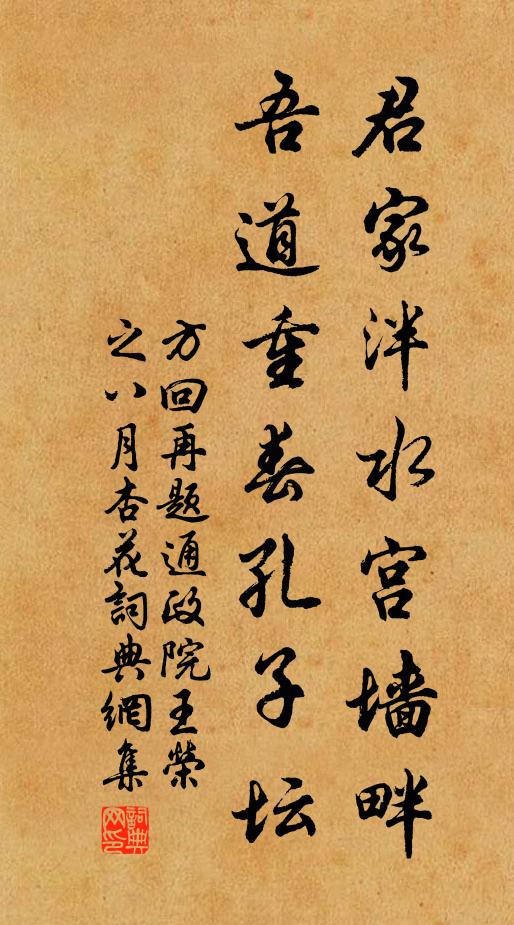 君家泮水宫墙畔
吾道重春孔子坛
方回再题通政院王荣
之八月杏花词典网集
词典网印